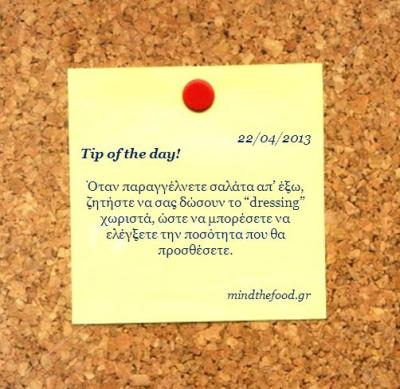 22/04/2013
Tip of the day!
Όταν παραγγέλνετε σαλάτα απ’ έξω,
ζητήστε να σας δώσουν το “dressing”
χωριστά, ώστε να μπορέσετε να
ελέγξετε την ποσότητα που θα
προσθέσετε.
mindthefood.gr